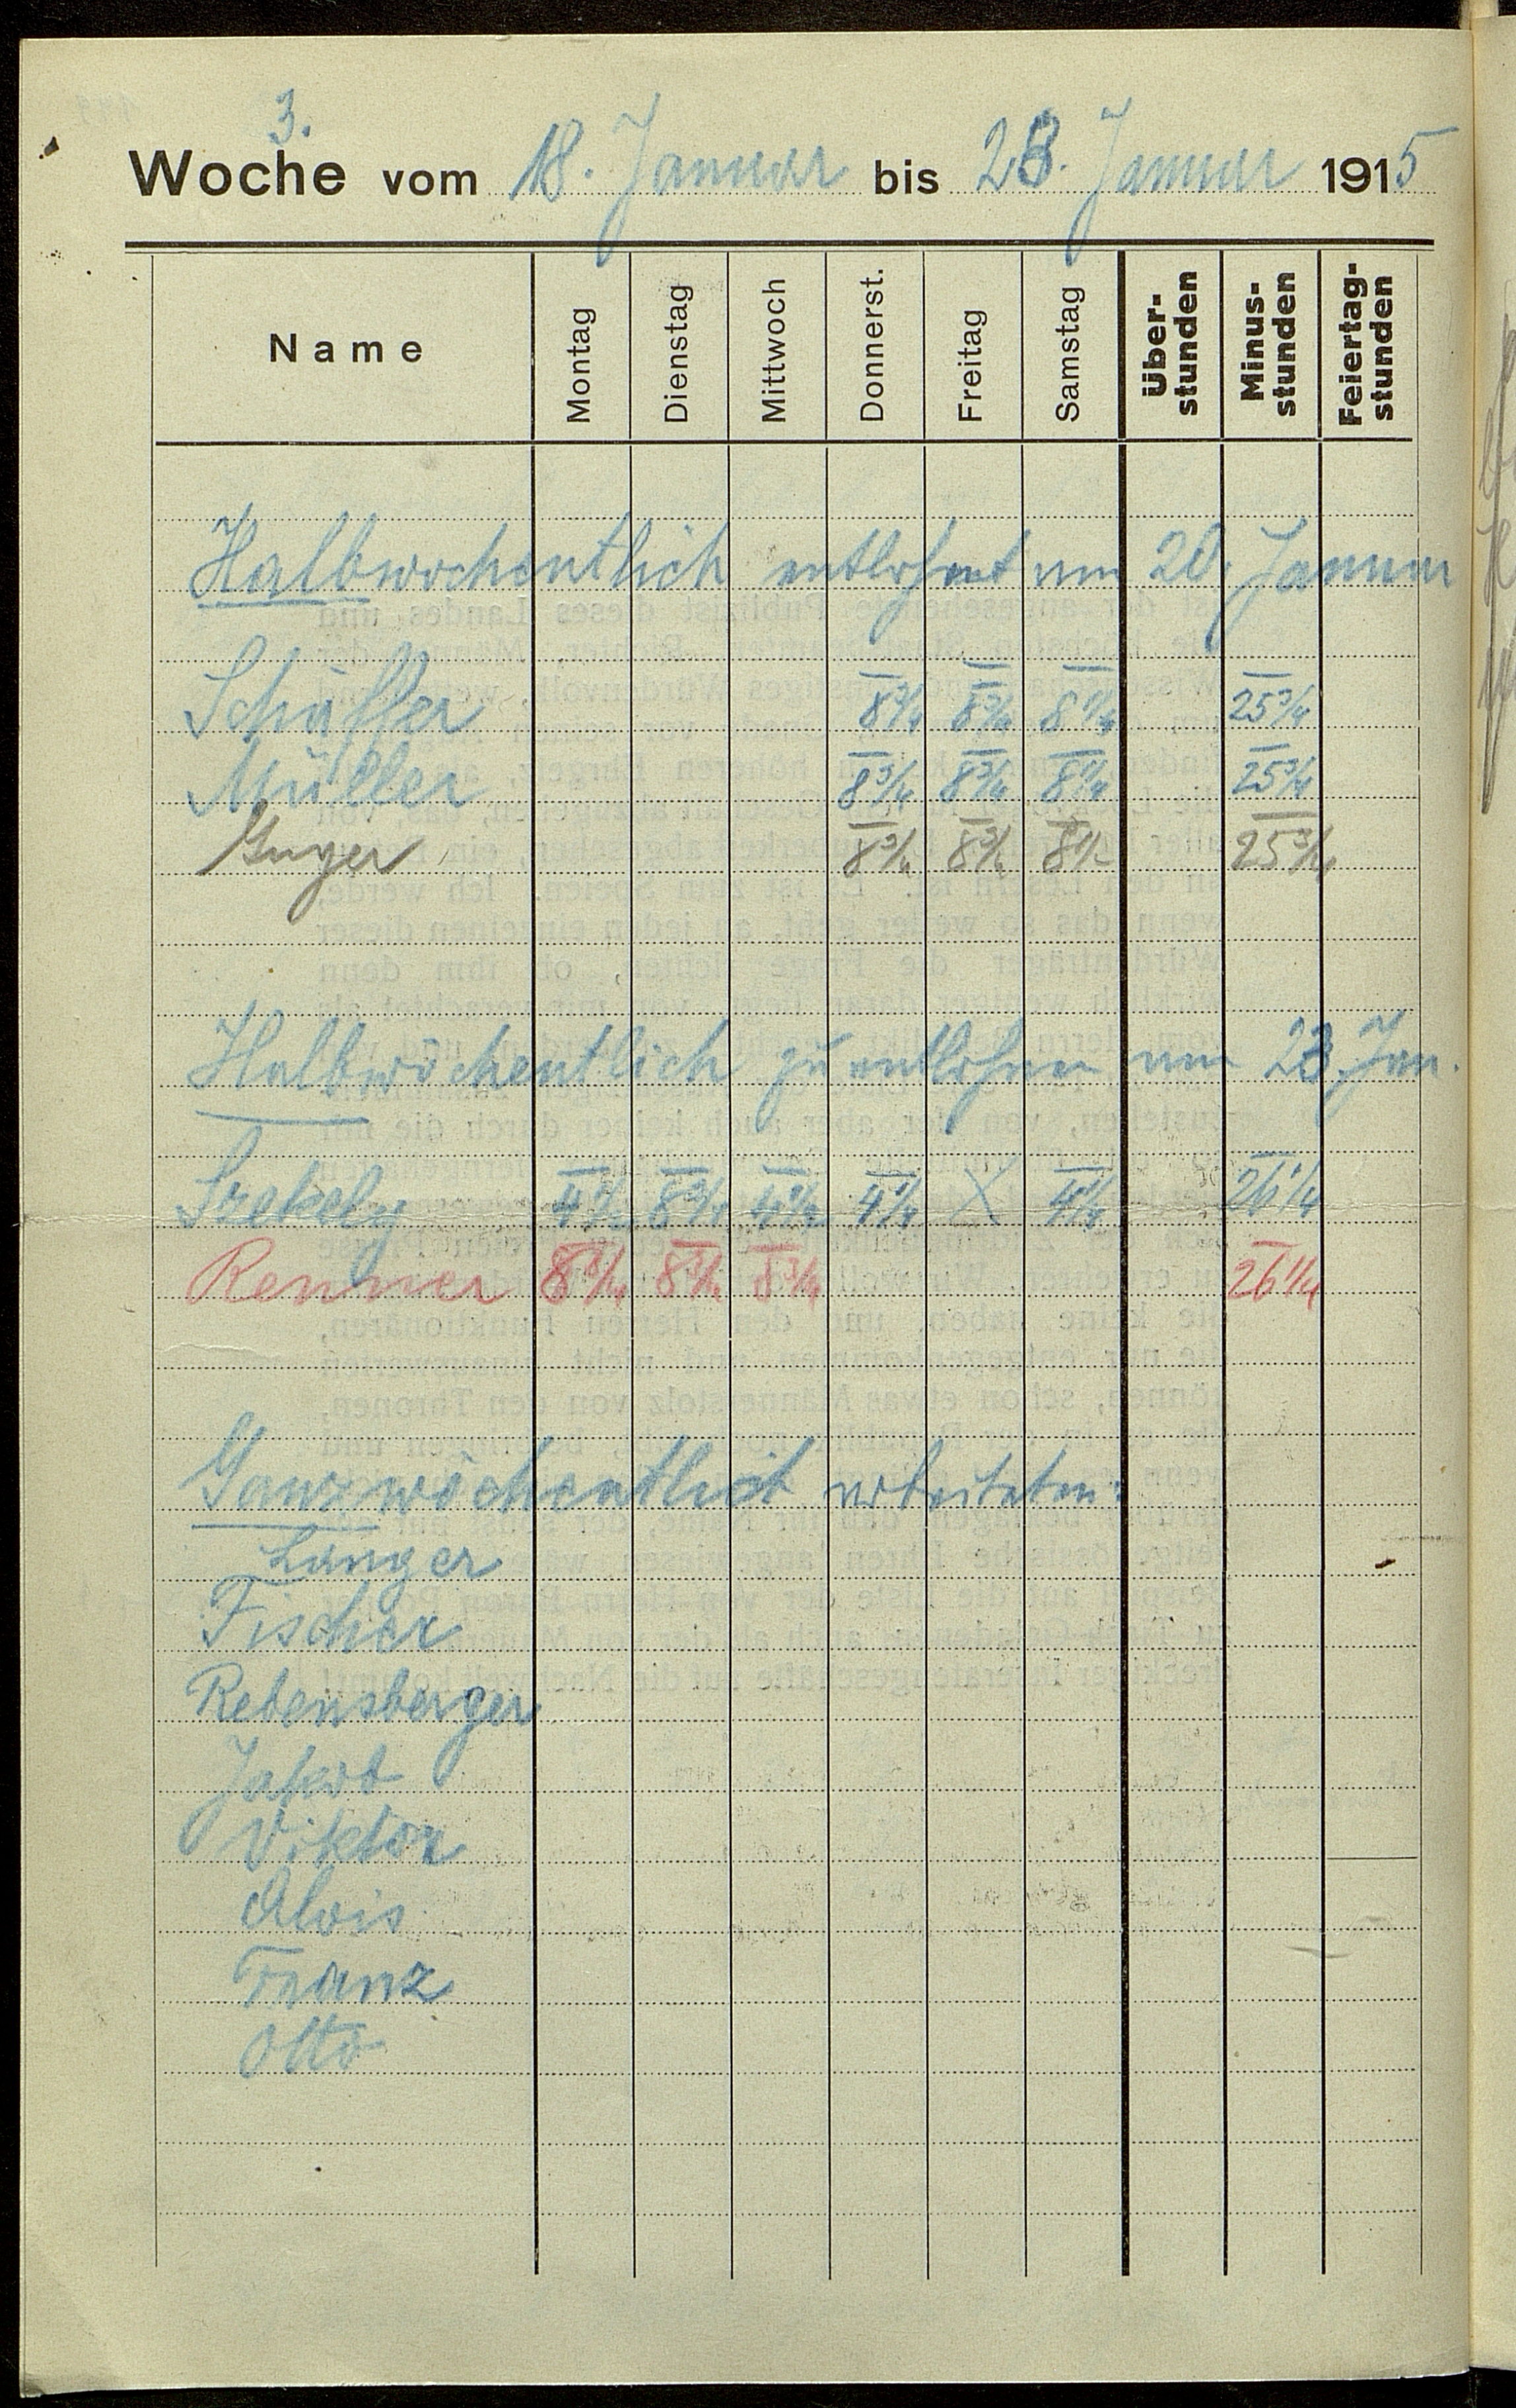 3.
Woche vom 18. Januar bis 23. Januar 1915
Name Montag Dienstag Mittwoch Donnerst. Freitag Samstag Über-stunden Minus-stunden Feiertag-stunden
Halbwochentlich entlohnt am 20. Januar
Schäffer 8 3/4 8 3/4 8 1/4 25 3/4
Müller 8 3/4 8 3/4 8 1/4 25 3/4
8 3/4 8 3/4 25 3/4
Halbwöchentlich zu entlohnen am 23. Jan.
Szekely 4 1/2 8 3/4 4 1/2 4 1/4 X 4 1/4 26 1/4
Renner 8 3/4 8 3/4 8 3/4 26 1/4
Ganzwöchentlich arbeiteten:
Langer
Fischer
Rebensberger
Jakob
Viktor
Alois
Franz
Otto